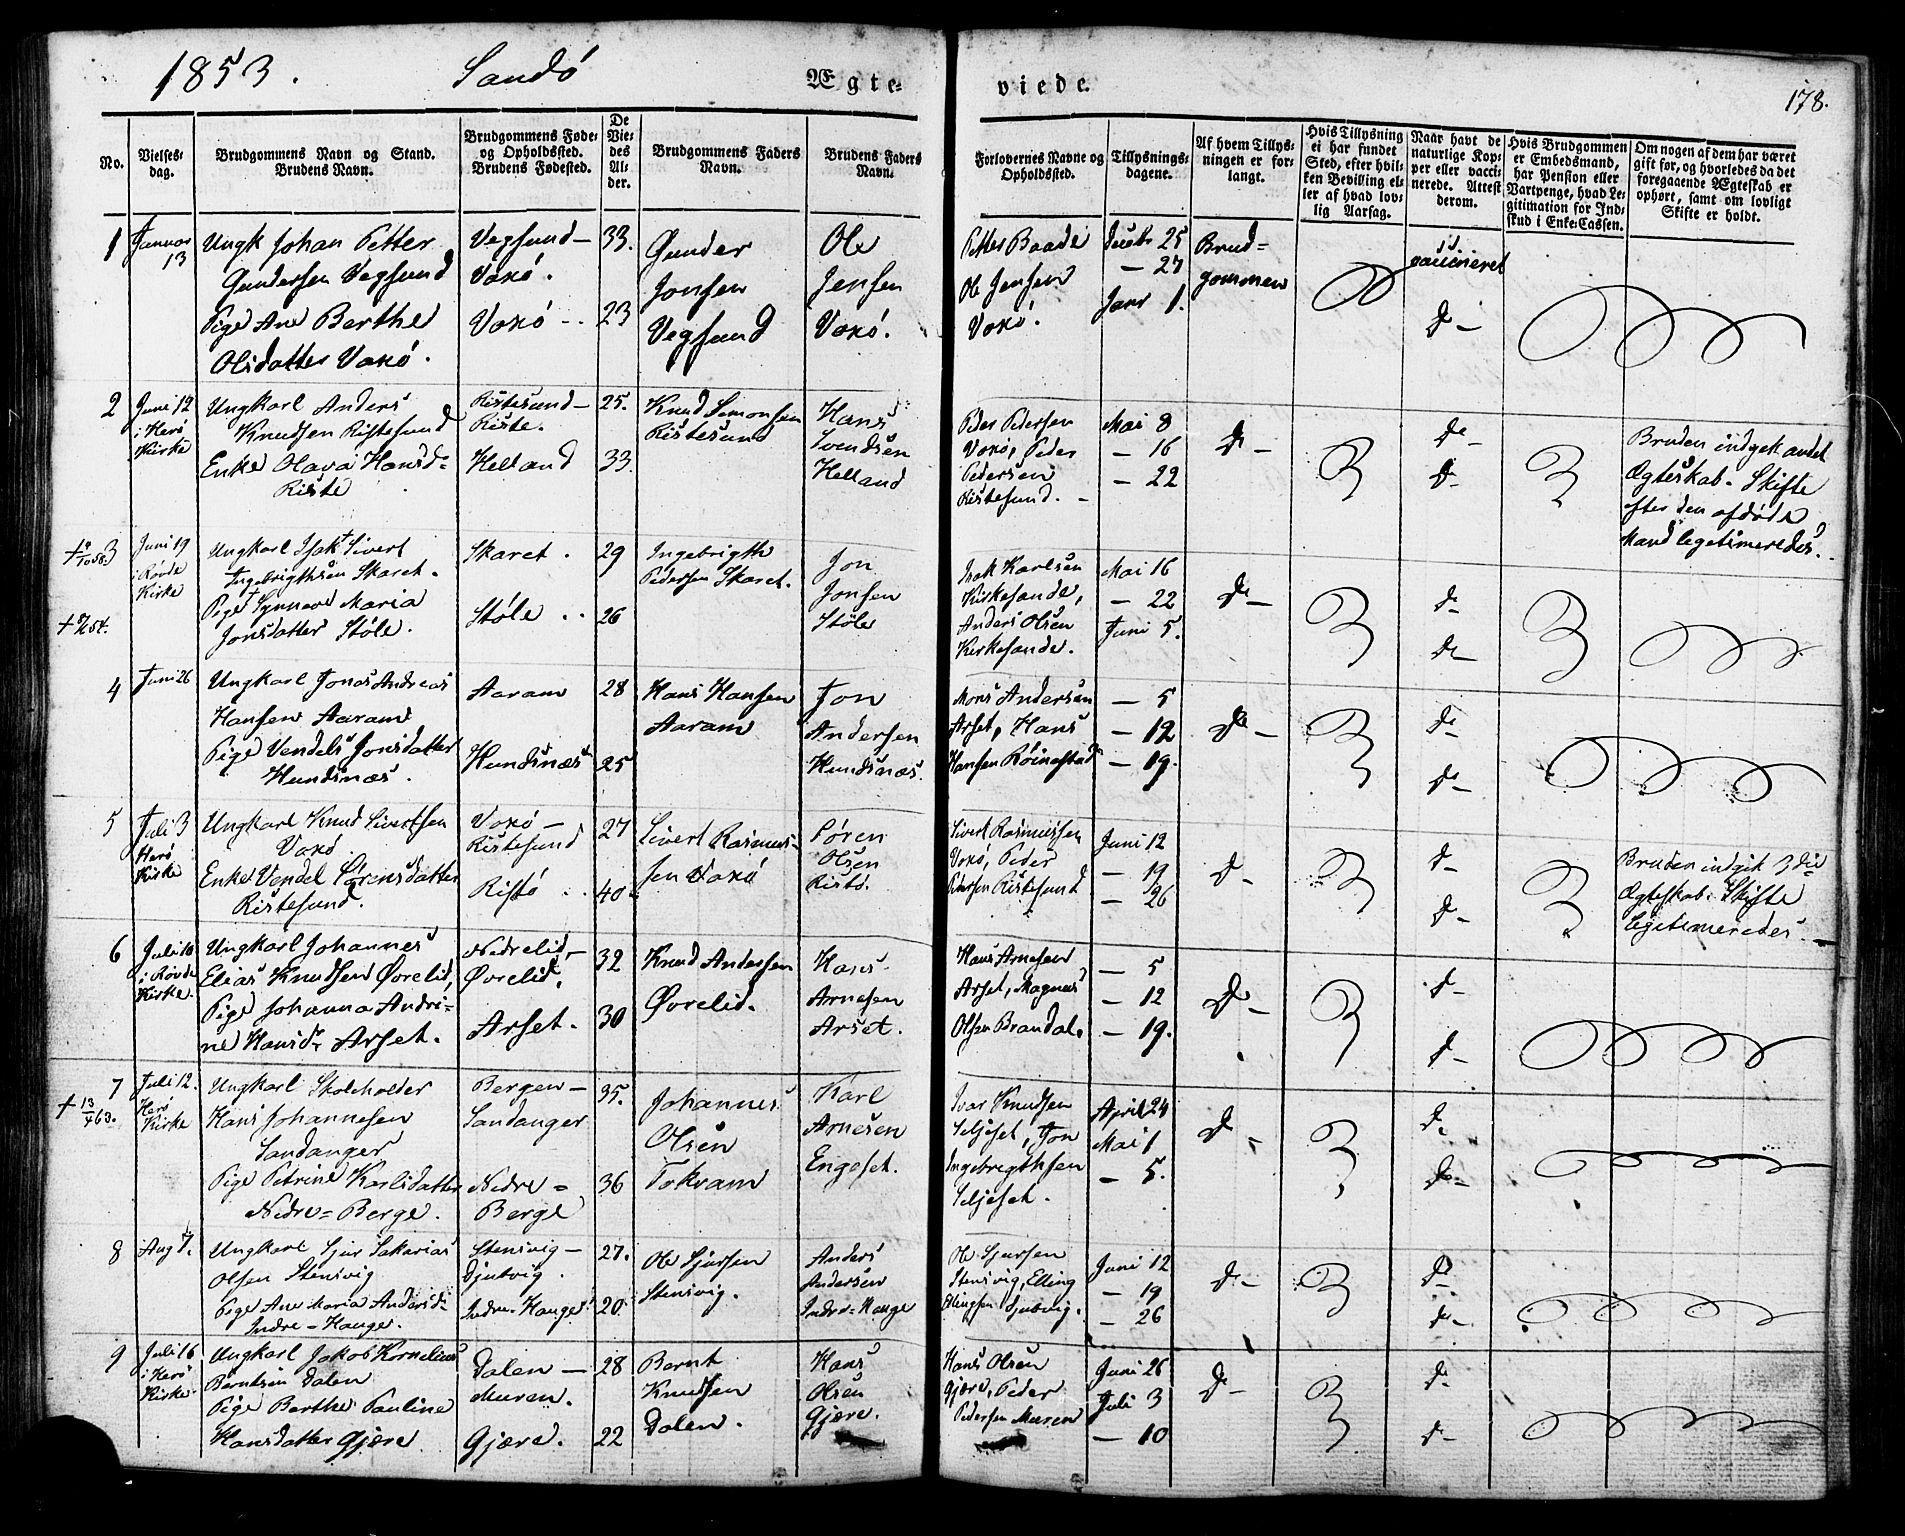 1853. Sandö Ægte-
viede. 178.
No.
Vielses-
dag.
Brudgommens Navn og Stand.
Brudens Navn.
Brudgommens Føde-
og Opholdssted.
Brudens Fødested.
De
Vie-
des
Al-
der.
Brudgommens Faders
Navn.
Brudens Faders
Navn.
Forlovernes Navne og
Opholdssted.
Tillysnings-
dagene.
Af hvem Tillys-
ningen er for-
langt.
Hvis Tillysning
ei har fundet
Sted, efter hvil-
ken Bevilling el-
ler af hvad lov-
lig Aarsag.
Naar havt de
naturlige Kop-
per eller vacci-
nerede. Attest
derom.
Hvis Brudgommen
er Embedsmand,
har Pension eller
Vartpenge, hvad Le-
gitimation for Ind-
skud i Enke-Cassen.
Om nogen af dem har været
gift før, og hvorledes da det
foregaaende Ægteskab er
ophørt, samt om lovligt
Skifte er holdt.
1
Januar
13
Ungk Johan Petter
Gundersen Vegsund
Pige Ane Berthe
Olsdatter Voxö.
Vegsund-
Voxö.
Voxö
33.
23
Gunder
Jonsen
Vegsund
Ole
Jensen
Voxö.
Petter Baade
Ole Jensen
Voxö.
Decbr 25
- 27
Janr 1.
Brud-
gommen
vaccineret
do-
2
Juni 12
i Herö
Kirke
Ungkarl Anders
Knudsen Ristesund
Enke Olava Hansd-
Riste
Ristesund-
Riste.
Helland
25.
33.
Knud Simonsen
Ristesund
Hans
Svendsen
Helland
Peder Pedersen
Voxö, Peder
Pedersen
Ristesund.
Mai 8
- 16
- 22
do-
do-
do-
Bruden indgik andet
Ægteskab. Skifte
efter den afdöde
Mand legitimeredes.
3
Juni 19
i Rövde
Kirke
Ungkarl Isak Sivert
Ingebrigthsen Skaret.
Pige Synneve Maria
Jonsdatter Stöle.
Skaret.
Stöle
29
26
Ingebrigth
Pedersen Skaret.
Jon
Jonsen
Stöle
Isak Karlsen
Kirkesande,
Anders Olsen
Kirkesande.
Mai 16
- 22
Juni 5.
do-
do-
do-
4
Juni 26
Ungkarl Jonas Andreas
Hansen Aaram
Pige Vendels Jonsdatter
Hundsnæs.
Aaram
Hundsnæs
28
25
Hans Hansen
Aaram
Jon
Andersen
Hundsnæs.
Mons Andersen
Arset, Hans
Hansen Röinestad
- 5
- 12
- 19.
do-
do-
do-
5
Juli 3
Herö
Kirke
Ungkarl Knud Sivertsen
Voxö
Enke Vendel Sörensdatter
Ristesund.
Voxö-
Ristesund
Ristö
27
40
Sivert Rasmus-
sen Voxö
Sören
Olsen
Ristö.
Sivert Rasmussen
Voxö, Peder
Pedersen Ristesund
Juni 12
- 19
- 26
do-
do-
do-
Bruden indgik 3die
Ægteskab. Skifte
legitimeredes.
6
Juli 10
i Rövde
Kirke.
Ungkarl Johannes
Elias Knudsen Övrelid,
Pige Johanna Andri-
ne Hansdr Arset.
Nedrelid-
Övrelid.
Arset.
32
30
Knud Andersen
Övrelid.
Hans
Arnesen
Arset.
Hans Arnesen
Arset, Magnus
Olsen Brandal.
- 5
- 12
- 19.
do-
do-
do-
7
+ 13/4 63.
Juli 12.
Herö
Kirke
Ungkarl Skoleholder
Hans Johannesen
Sandanger
Pige Petrine Karlsdatter
Nedre-Berge.
Bergen-
Sandanger
Nedre-
Berge
35.
36
Johannes
Olsen
Tokvam
Karl
Arnesen
Engeset.
Ivar Knudsen
Seljeset, Jon
Ingebrigthsen
Seljeset.
April 24
Mai 1
- 5.
do-
do-
do-
8
Aug 7.
Ungkarl Sjur Sakarias
Olsen Stensvig
Pige Ane Maria Andersd-
Indre-Hauge.
Stensvig-
Djubvig.
Indre-Hauge
27.
20.
Ole Sjursen
Stensvig.
Anders
Andersen
Indre-Hauge
Ole Sjursen
Stensvig, Elling
Ellingsen Djubvig.
Juni 12
- 19
- 26
do-
do-
do-
9
Juli 16
i Herö
Kirke
Ungkarl Jakob Kornelius
Berntsen Dalen
Pige Berthe Pauline
Hansdatter Gjære.
Dalen-
Muren.
Gjære.
28
22
Bernt
Knudsen
Dalen.
Hans
Olsen
Gjære.
Hans Olsen
Gjære, Peder
Pedersen Muren
Juni 26
Juli 3
- 10
do-
do-
do-